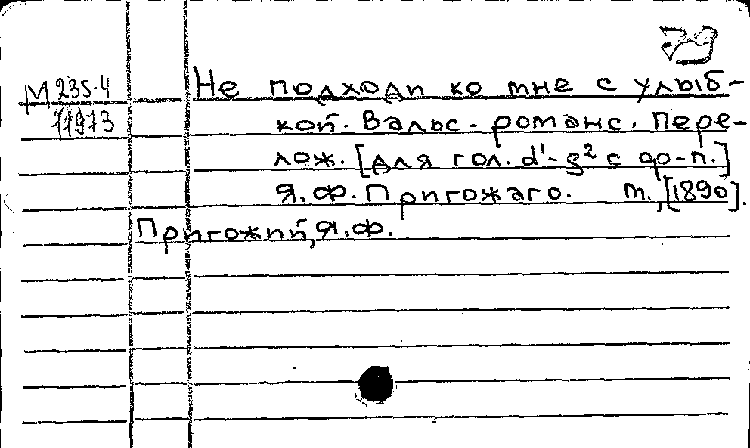 79
М 235-4
11973
Не подходи ко мне с улыб-
кой. Вальс-романс. Пере-
лож. [для гол. d¹-g² с ф-п.]
Я. Ф. Пригожаго. М., [1890].
Пригожий, Я. Ф.